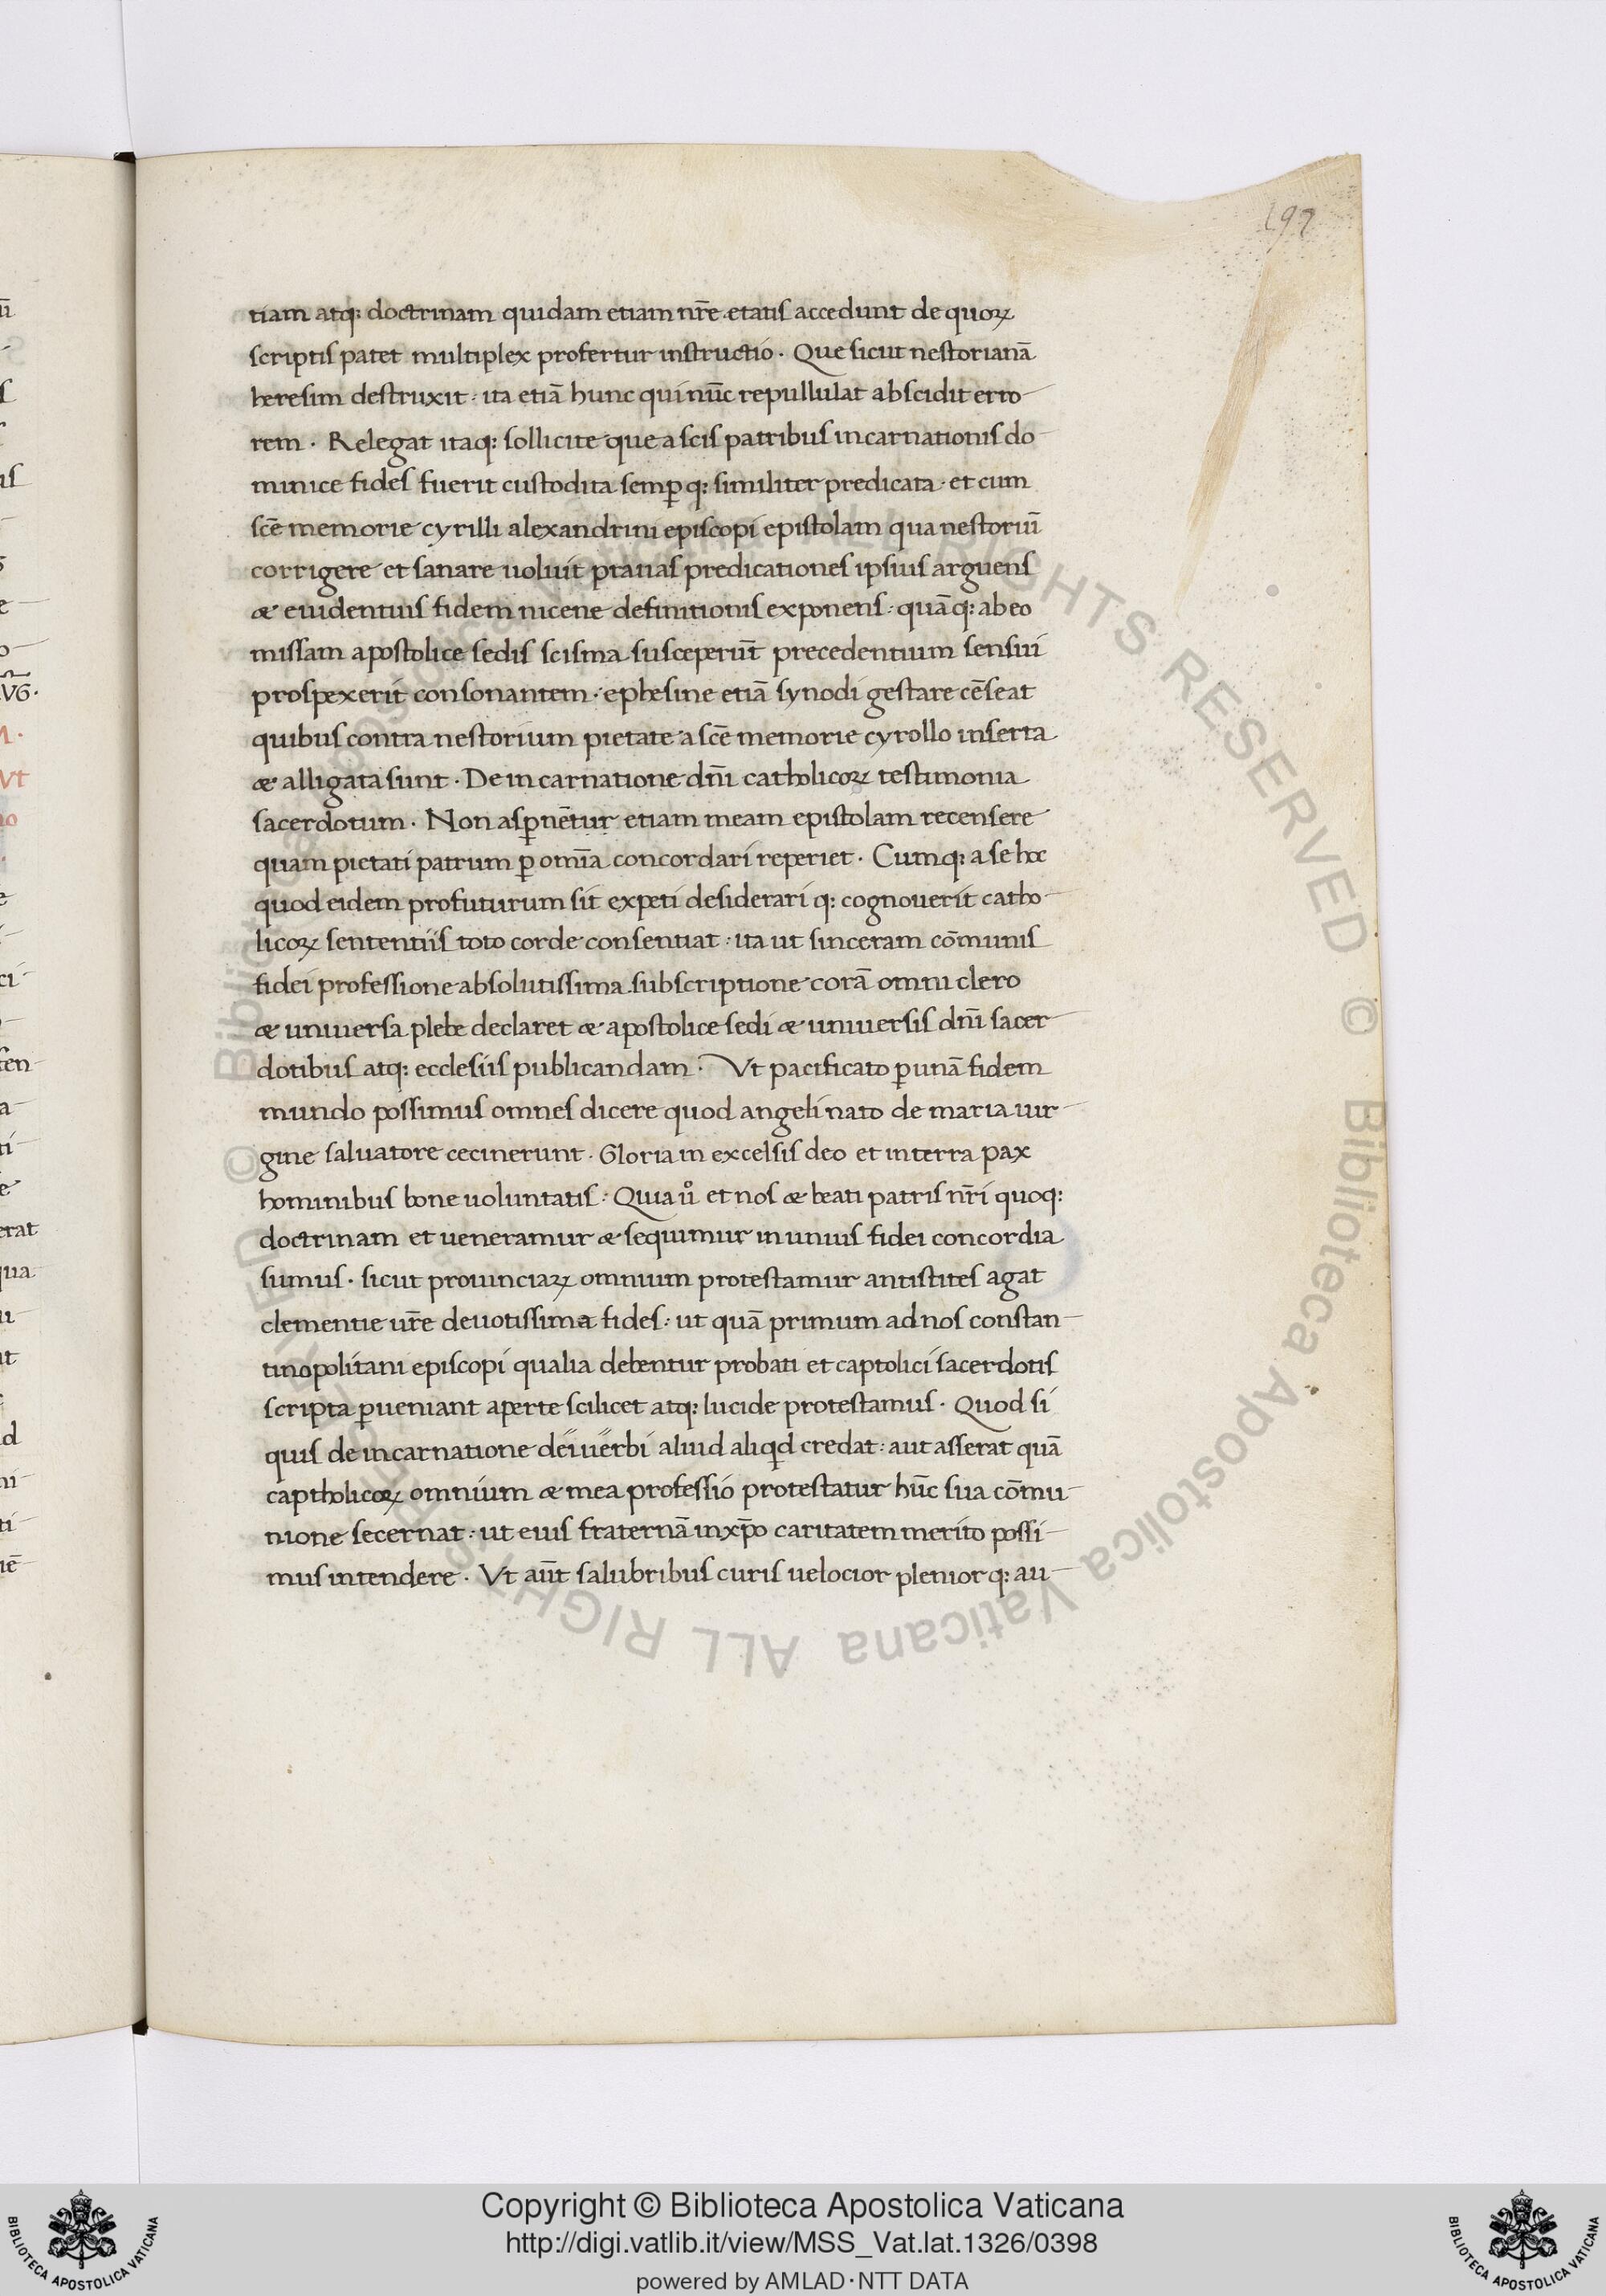 197
tiam atq: doctrinam quidam etiam nr̄e etatis accedunt de quoꝝ
scriptis patet multiplex profertur instructio · Que sicut nestorianā
heresim destruxit : ita etiā hunc qui nūc repullulat abscidit erro-
rem · Relegat itaq: sollicite que a scis patribus incarnationis do-
minice fides fuerit custodita semꝑq: similiter predicata · et cum
scē memorie cyrilli alexandrini episcopi epistolam qua nestoriū
corrigere et sanare uoluit prauas predicationes ipsius arguens
æ euidentius fidem nicene definitionis exponens : quāq: ab eo
missam apostolice sedis scisma susceperūt precedentium sensui
prospexerit consonantem · ephesine etiā synodi gestare cēseat
quibus contra nestorium pietate a scē memorie cyrollo inserta
æ alligata sunt · De incarnatione dn̄i catholicoꝝ testimonia
sacerdotum · Non asꝑnētur etiam meam epistolam recensere
quam pietati patrum ꝑ omīa concordari reperiet · Cumq: a se hoc
quod eidem profuturum sit expeti desiderari q: cognouerit catho-
licoꝝ sententiis toto corde consentiat : ita ut sinceram cōmunis
fidei professione absolutissima subscriptione corā omni clero
æ uniuersa plebe declaret æ apostolice sedi æ uniuersis dn̄i sacer-
dotibus atq: ecclesiis publicandam · Vt pacificato ꝑ unā fidem
mundo possimus omnes dicere quod angeli nato de maria uir-
gine saluatore cecinerunt · Gloria in excelsis deo et in terra pax
hominibus bone uoluntatis : Quia uͦ et nos æ beati patris nr̄i quoq:
doctrinam et ueneramur æ sequimur in unius fidei concordia
sumus · sicut prouinciaꝝ omnium protestamur antistites agat
clementie ur̄e deuotissima fides : ut quā primum ad nos constan-
tinopolitani episcopi qualia debentur probati et captolici sacerdotis
scripta ꝑueniant aperte scilicet atq: lucide protestamus · Quod si
quis de incarnatione dei uerbi aliud aliqd credat : aut asserat quā
captholicoꝝ omnium æ mea professio protestatur hūc sua cōmu-
nione secernat : ut eius fraternā in xp̄o caritatem merito possi-
mus intendere · Vt aūt salubribus curis uelocior plenior q: au-
© Biblioteca Apostolica Vaticana ALL RIGHTS RESERVED © Biblioteca Apostolica Vaticana ALL RIGHTS RESERVED
Copyright © Biblioteca Apostolica Vaticana
http://digi.vatlib.it/view/MSS_Vat.lat.1326/0398
powered by AMLAD·NTT DATA
BIBLIOTECA APOSTOLICA VATICANA
BIBLIOTECA APOSTOLICA VATICANA